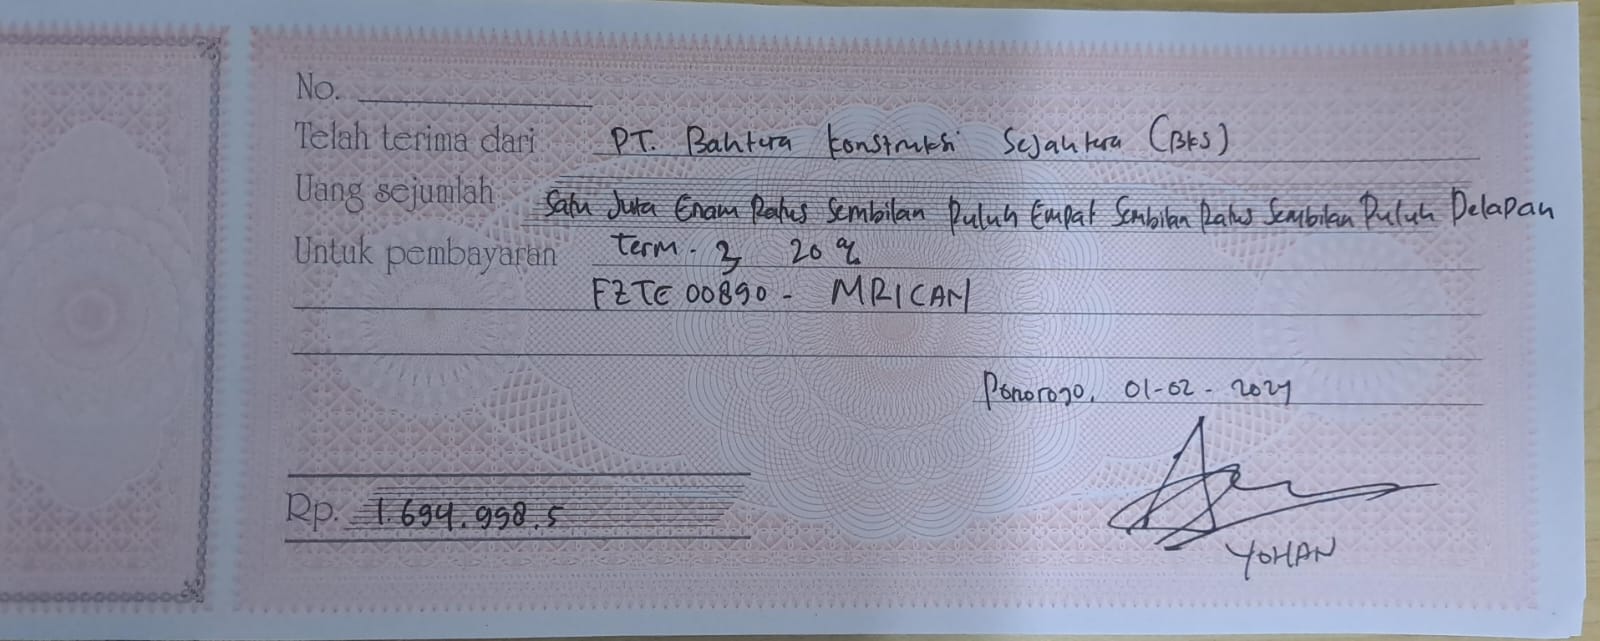 No.
Telah terima dari PT. Bahtera Konstruksi Sejahtera (BKS)
Uang sejumlah Satu Juta Enam Ratus Sembilan Puluh Empat Sembilan Ratus Sembilan Puluh Delapan
Untuk pembayaran term. 3 20 %
FZTE 00890 - MRICAN
Ponorogo, 01-02-2024
Rp. 1.694.998.5
YOHAN